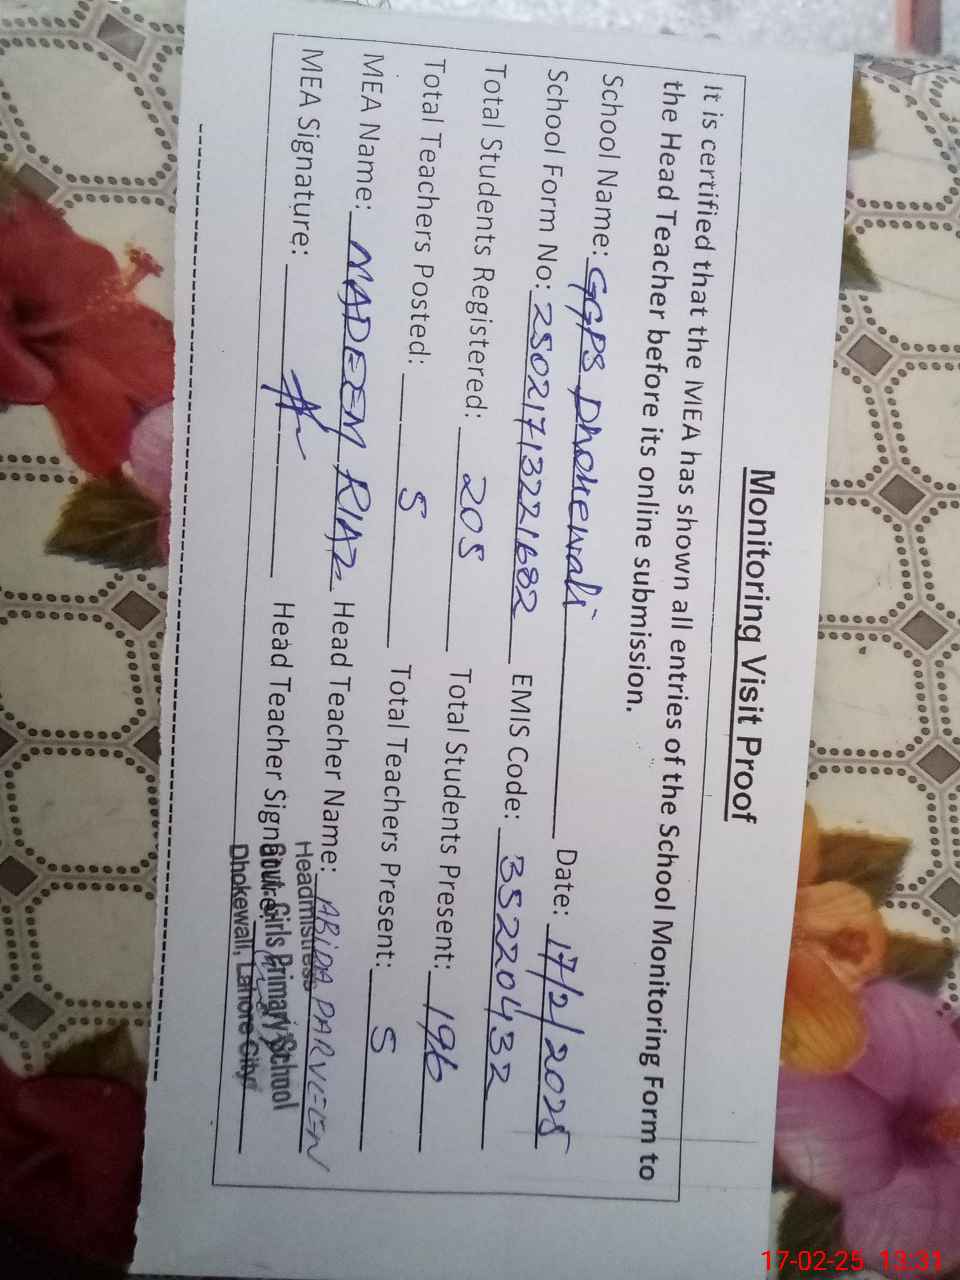 Monitoring Visit Proof
It is certified that the MEA has shown all entries of the School Monitoring Form to
the Head Teacher before its online submission.
School Name: GGPS Dhokewali Date: 17/2/2025
School Form No: 25021713221682 EMIS Code: 35220432
Total Students Registered: 205 Total Students Present: 196
Total Teachers Posted: 5 Total Teachers Present: 5
MEA Name: NADEEM RIAZ Head Teacher Name: ABIDA PARVEEN
MEA Signature: Head Teacher Signature:
Headmistress
Govt. Girls Primary School
Dhokewali, Lahore City
17-02-25 13:31